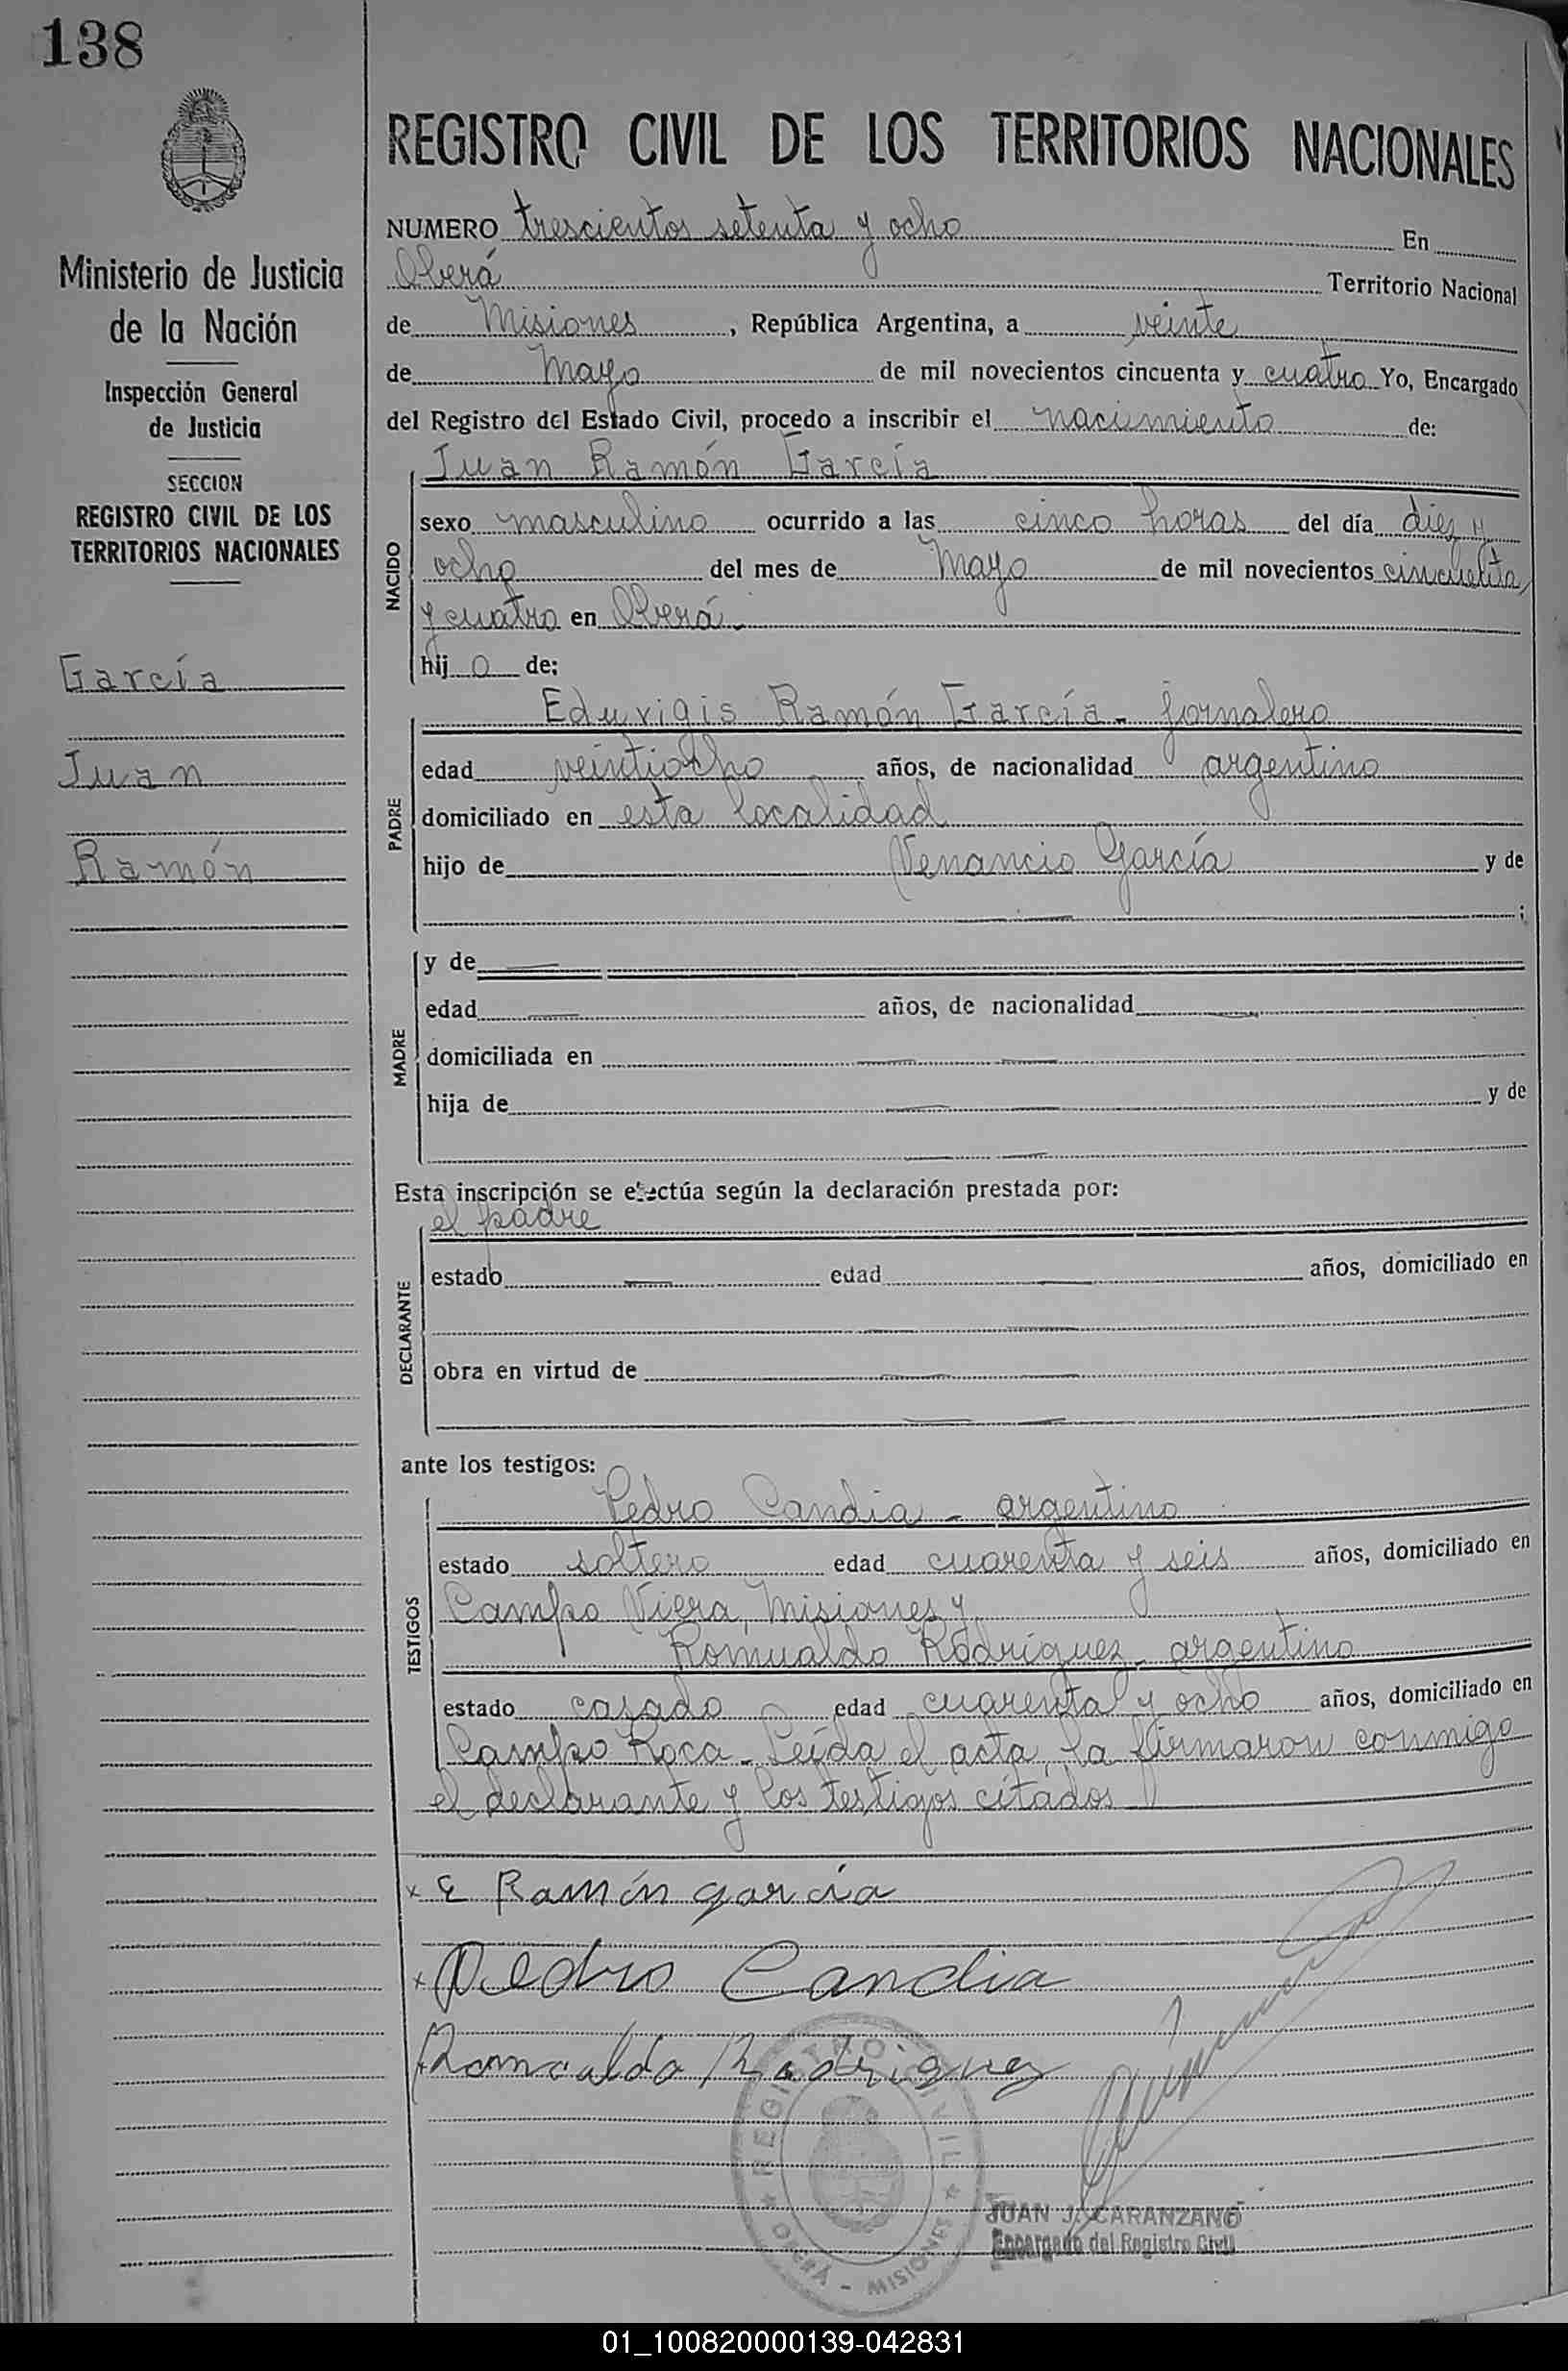 138
REGISTRO CIVIL DE LOS TERRITORIOS NACIONALES
Ministerio de Justicia
de la Nación
Inspección General
de Justicia
SECCION
REGISTRO CIVIL DE LOS
TERRITORIOS NACIONALES
García
Juan
Ramón
NUMERO trescientos setenta y ocho En
Oberá Territorio Nacional
de Misiones, República Argentina, a veinte
de Mayo de mil novecientos cincuenta y cuatro Yo, Encargado
del Registro del Estado Civil, procedo a inscribir el nacimiento de:
NACIDO
Juan Ramón García
sexo masculino ocurrido a las cinco horas del día diez y
ocho del mes de Mayo de mil novecientos cincuenta
y cuatro en Oberá.
hijo de:
PADRE
Eduvigis Ramón García - jornalero
edad veintiocho años, de nacionalidad argentino
domiciliado en esta localidad
hijo de Venancio García y de
;
MADRE
y de
edad años, de nacionalidad
domiciliada en
hija de y de
Esta inscripción se efectúa según la declaración prestada por:
DECLARANTE
el padre
estado edad años, domiciliado en
obra en virtud de
ante los testigos:
TESTIGOS
Pedro Candia - argentino
estado soltero edad cuarenta y seis años, domiciliado en
Campo Viera, Misiones y
Romualdo Rodríguez - argentino
estado casado edad cuarenta y ocho años, domiciliado en
Campo Roca - Leída el acta, la firmaron conmigo
el declarante y los testigos citados
x E Ramón garcia
x Pedro Candia
Romualdo Rodriguez
REGISTRO CIVIL
OBERÁ - MISIONES
JUAN J. CARANZANO
Encargado del Registro Civil
01_100820000139-042831